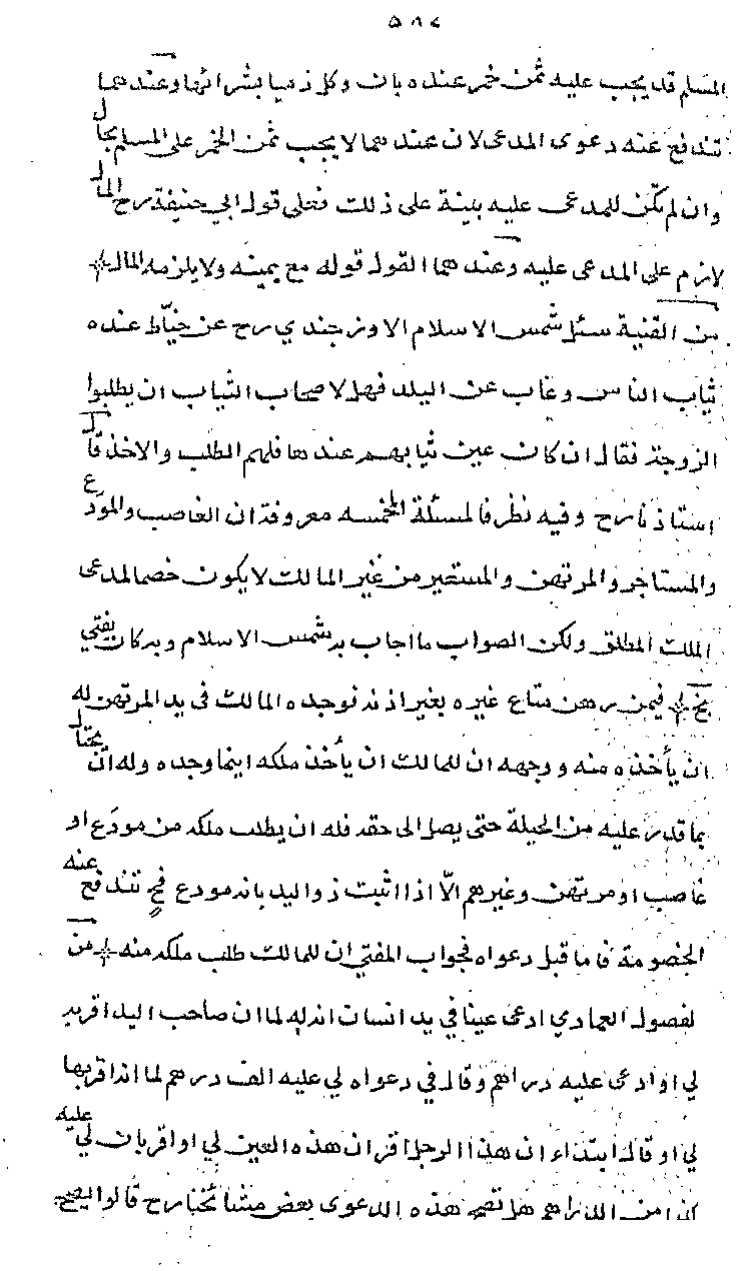 ٥٨٢
المسلم قد يجب عليه ثمن خمر عنده بان وكل ذميا بشرائها وعندهما
تندفع عنه دعوى المدعى لان عندهما لا يجب ثمن الخمر على المسلم بحال
وان لم تكن للمدعى عليه بينة على ذلك فعلى قول ابي حنيفة رح المال
لازم على المدعى عليه وعندهما القول قوله مع يمينه ولا يلزمه المال
من القنية سئل شمس الاسلام الاوزجندي رح عن خياط عنده
ثياب الناس وغاب عن البلد فهل لاصحاب الثياب ان يطلبوا
الزوجة فقال ان كان عين ثيابهم عندها فلهم الطلب والاخذ قال
استاذنا رح وفيه نظر فالمسئلة المخمسه معروفة ان الغاصب والمودَع
والمستاجر والمرتهن والمستعير من غير المالك لا يكون خصما لمدعى
الملك المطلق ولكن الصواب ما اجاب به شمس الاسلام وبه كان يفتي
بخ فيمن رهن متاع غيره بغير اذنه فوجده المالك في يد المرتهن له
ان يأخذه منه ووجهه ان للمالك ان يأخذ ملكه اينما وجده وله ان يحتال
بما قدر عليه من الحيلة حتى يصل الى حقه فله ان يطلب ملكه من مودَع او
غاصب او مرتهن وغيرهم الّا اذا اثبت ذو اليد بانه مودع فحٍ تندفع عنه
الخصومة فاما قبل دعواه فجواب المفتي ان للمالك طلب ملكه منه من
لفصول العمادي ادعى عينا في يد انسان انه له لما ان صاحب اليد اقر به
لي او ادعى عليه دراهم وقال في دعواه لي عليه الف درهم لما انه اقر بها
لي او قال ابتداء ان هذا الرجل اقر ان هذه العين لي او اقر بان لي عليه
كذا من الدراهم هل تصح هذه الدعوى بعض مشائخنا رح قالوا يصح